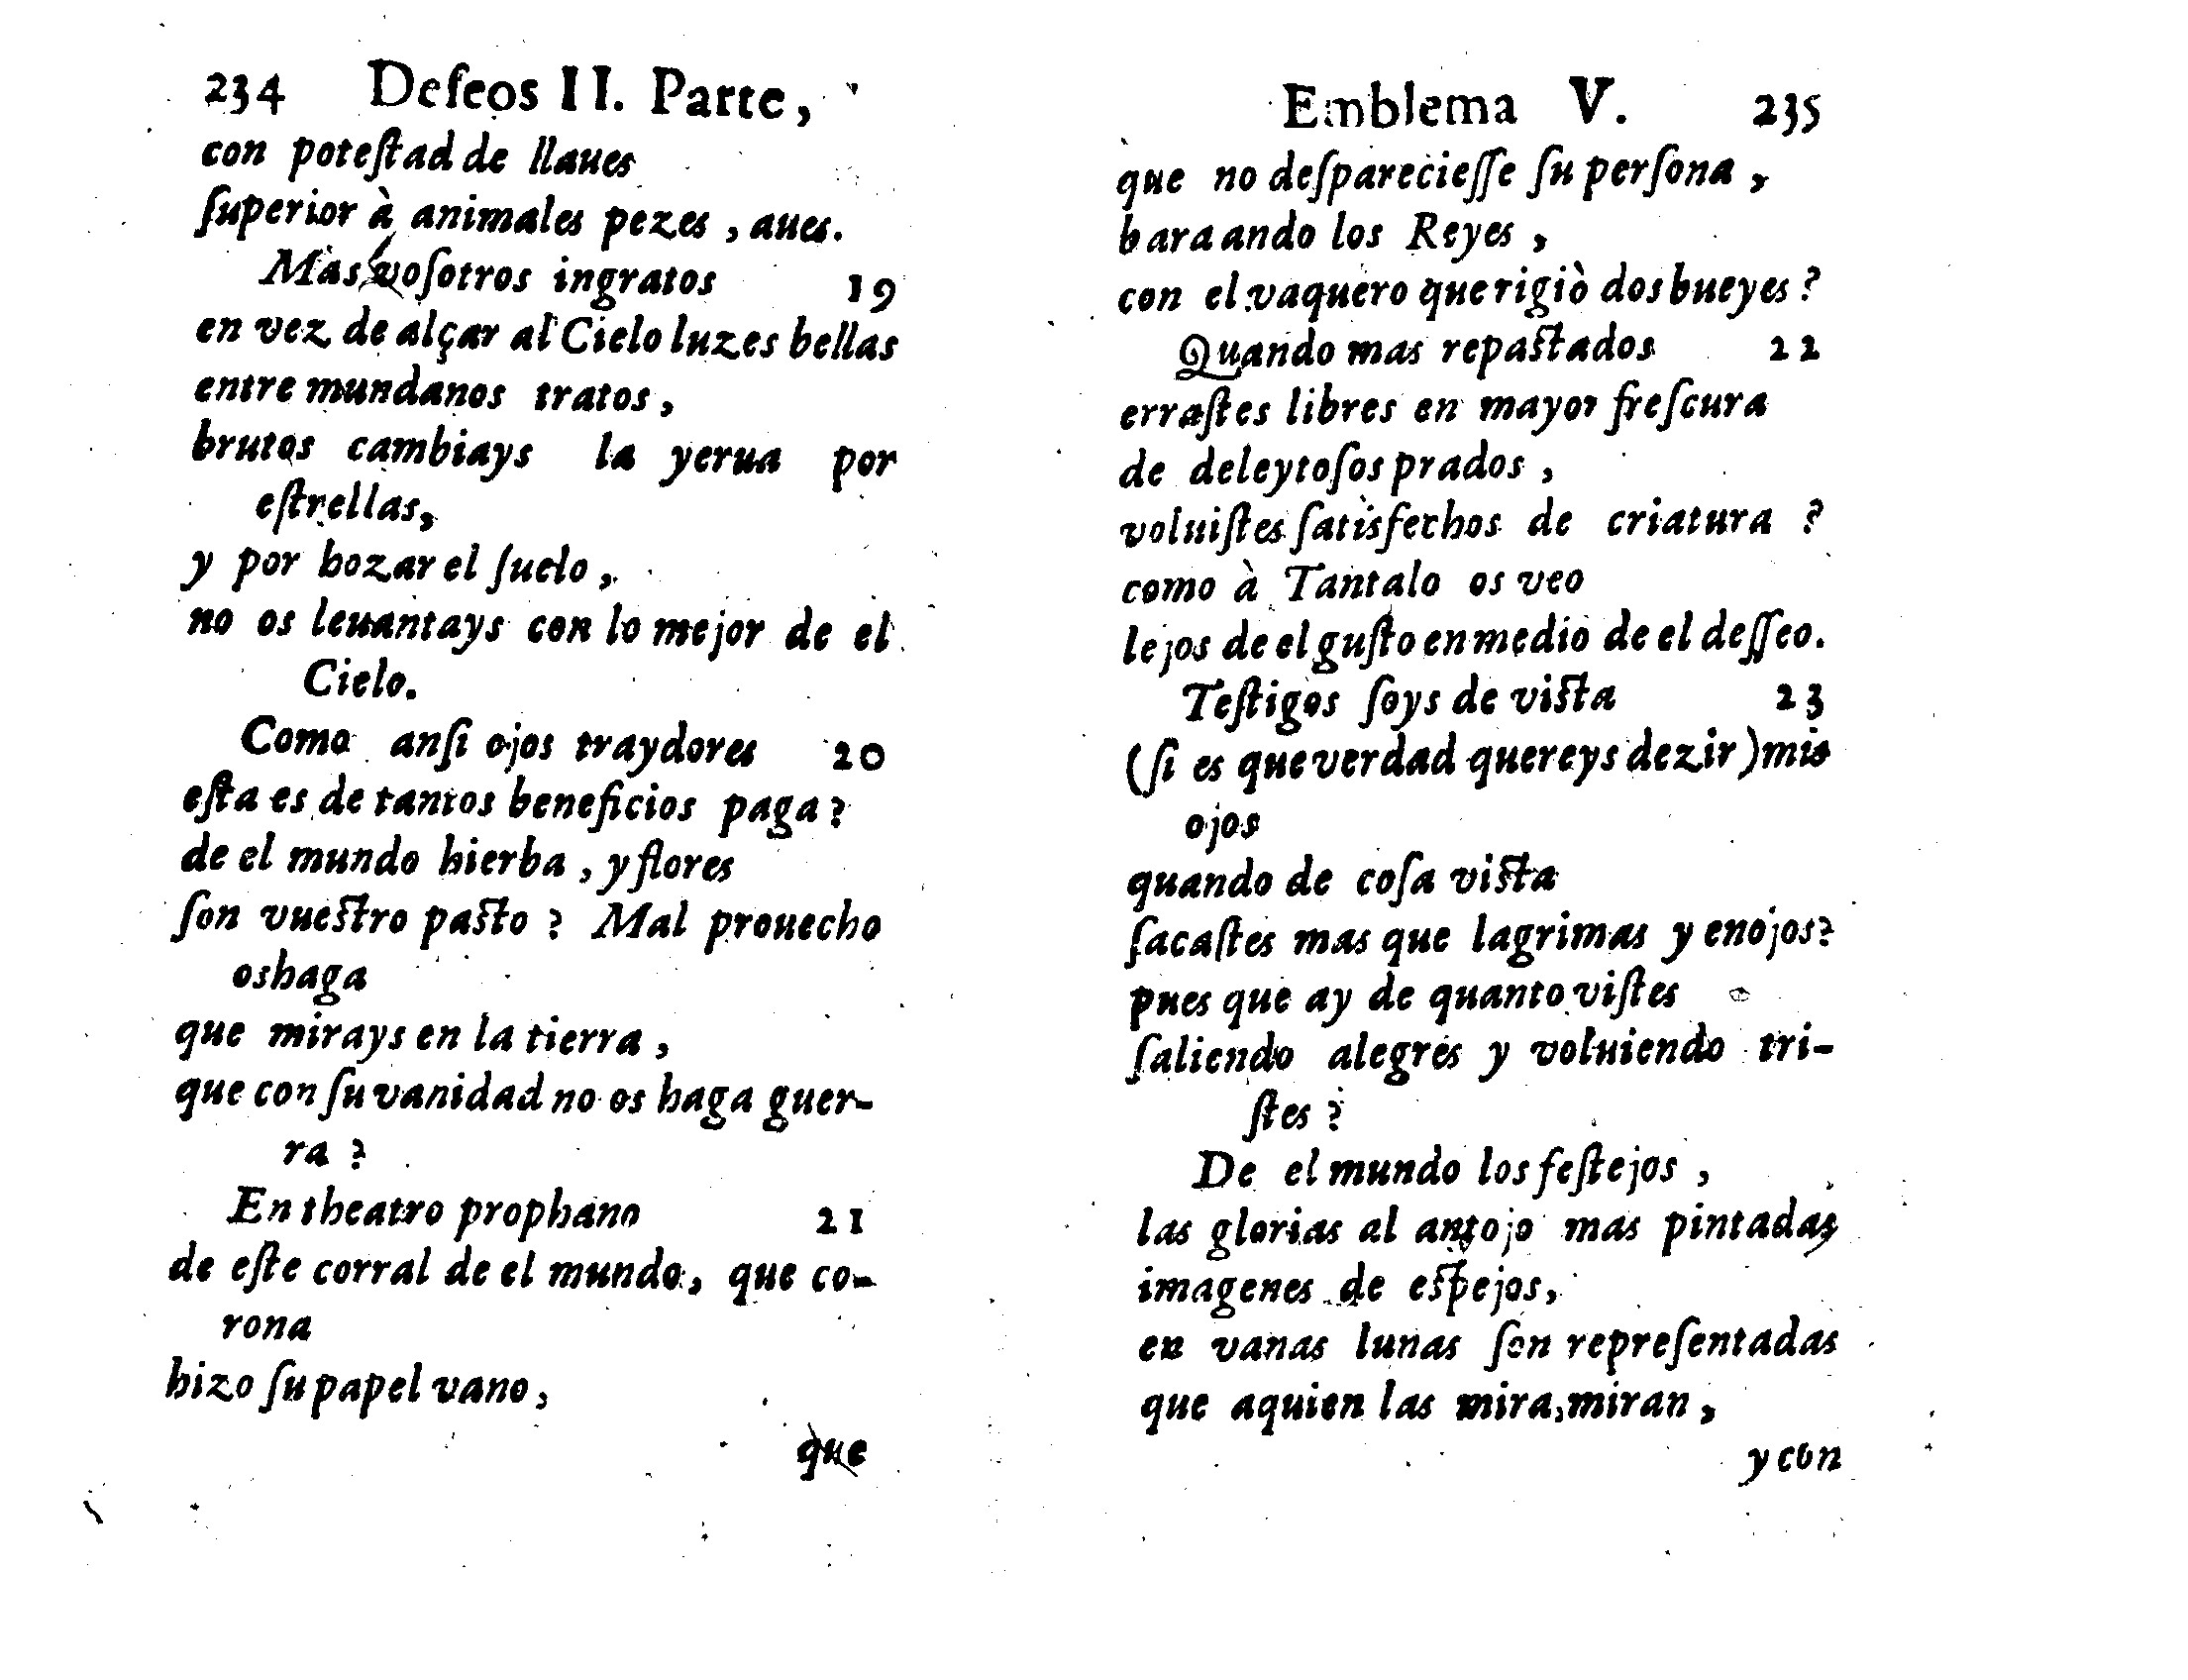 234 Deſeos II. Parte,
con poteſtad de llaues
ſuperior à animales pezes, aues.
Mas voſotros ingratos 19
en vez de alçar al Cielo luzes bellas
entre mundanos tratos,
brutos cambiays la yerua por
eſtrellas,
y por hozar el ſuelo,
no os leuantays con lo mejor de el
Cielo.
Como anſi ojos traydores 20
eſta es de tantos beneficios paga?
de el mundo hierba, y flores
ſon vueſtro paſto? Mal prouecho
os haga
que mirays en la tierra,
que con ſu vanidad no os haga guer-
ra?
En theatro prophano 21
de eſte corral de el mundo, que co-
rona
hizo ſu papel vano,
que
Emblema V. 235
que no deſparecieſſe ſu perſona,
baraando los Reyes,
con el vaquero que rigiò dos bueyes?
Quando mas repaſtados 22
erraſtes libres en mayor freſcura
de deleytoſos prados,
voluiſtes ſatisfechos de criatura?
como à Tantalo os veo
lejos de el guſto en medio de el deſſeo.
Teſtigos ſoys de viſta 23
(ſi es que verdad quereys dezir) mis
ojos
quando de coſa viſta
ſacaſtes mas que lagrimas y enojos?
pues que ay de quanto viſtes
ſaliendo alegres y voluiendo tri-
ſtes?
De el mundo los feſtejos,
las glorias al antojo mas pintadas
imagenes de eſpejos,
en vanas lunas ſon repreſentadas
que aquien las mira, miran,
y con